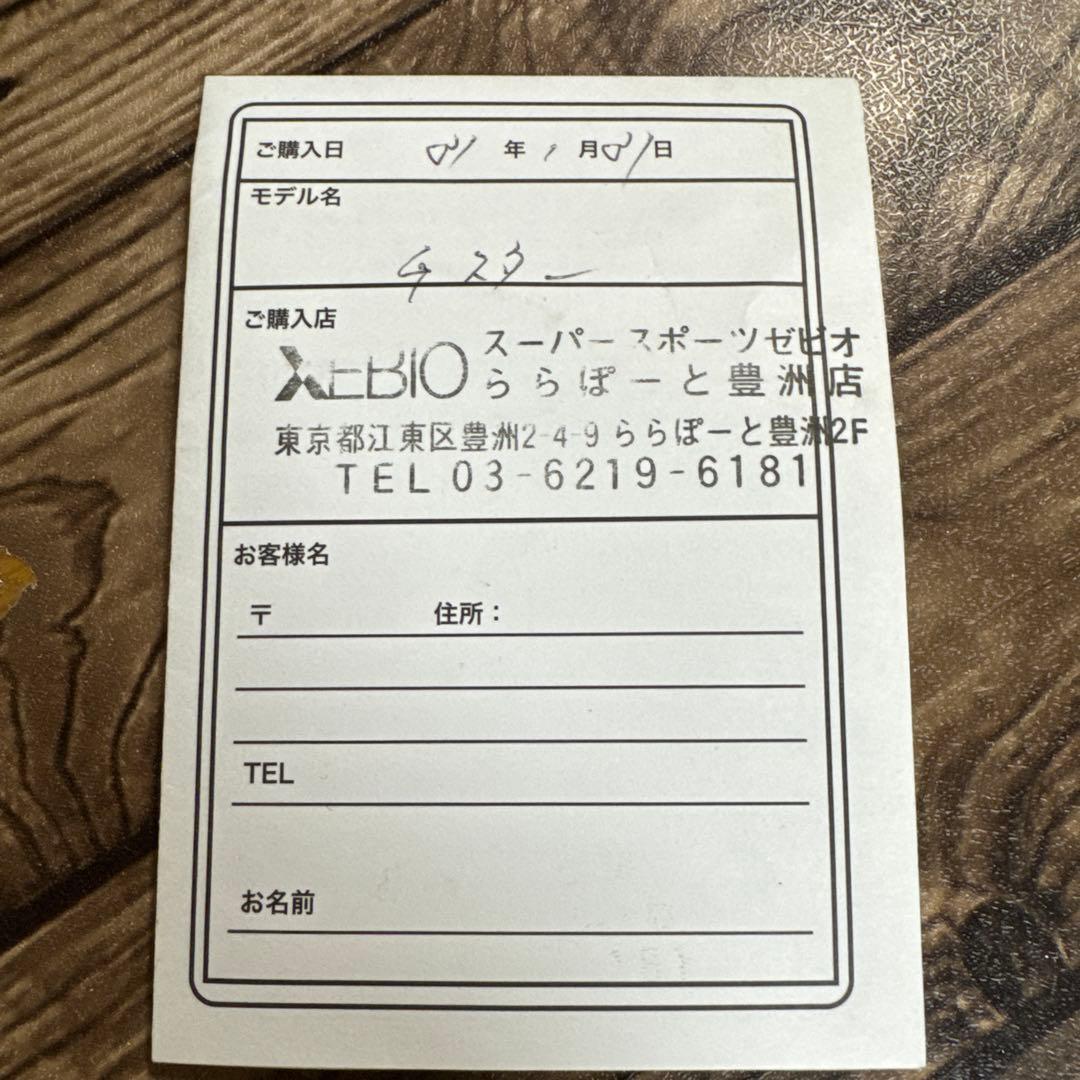 ご購入日 21年1月21日
モデル名
チスター
ご購入店
XEBIO スーパースポーツゼビオ
ららぽーと豊洲店
東京都江東区豊洲2-4-9 ららぽーと豊洲2F
TEL 03-6219-6181
お客様名
〒 住所：
TEL
お名前